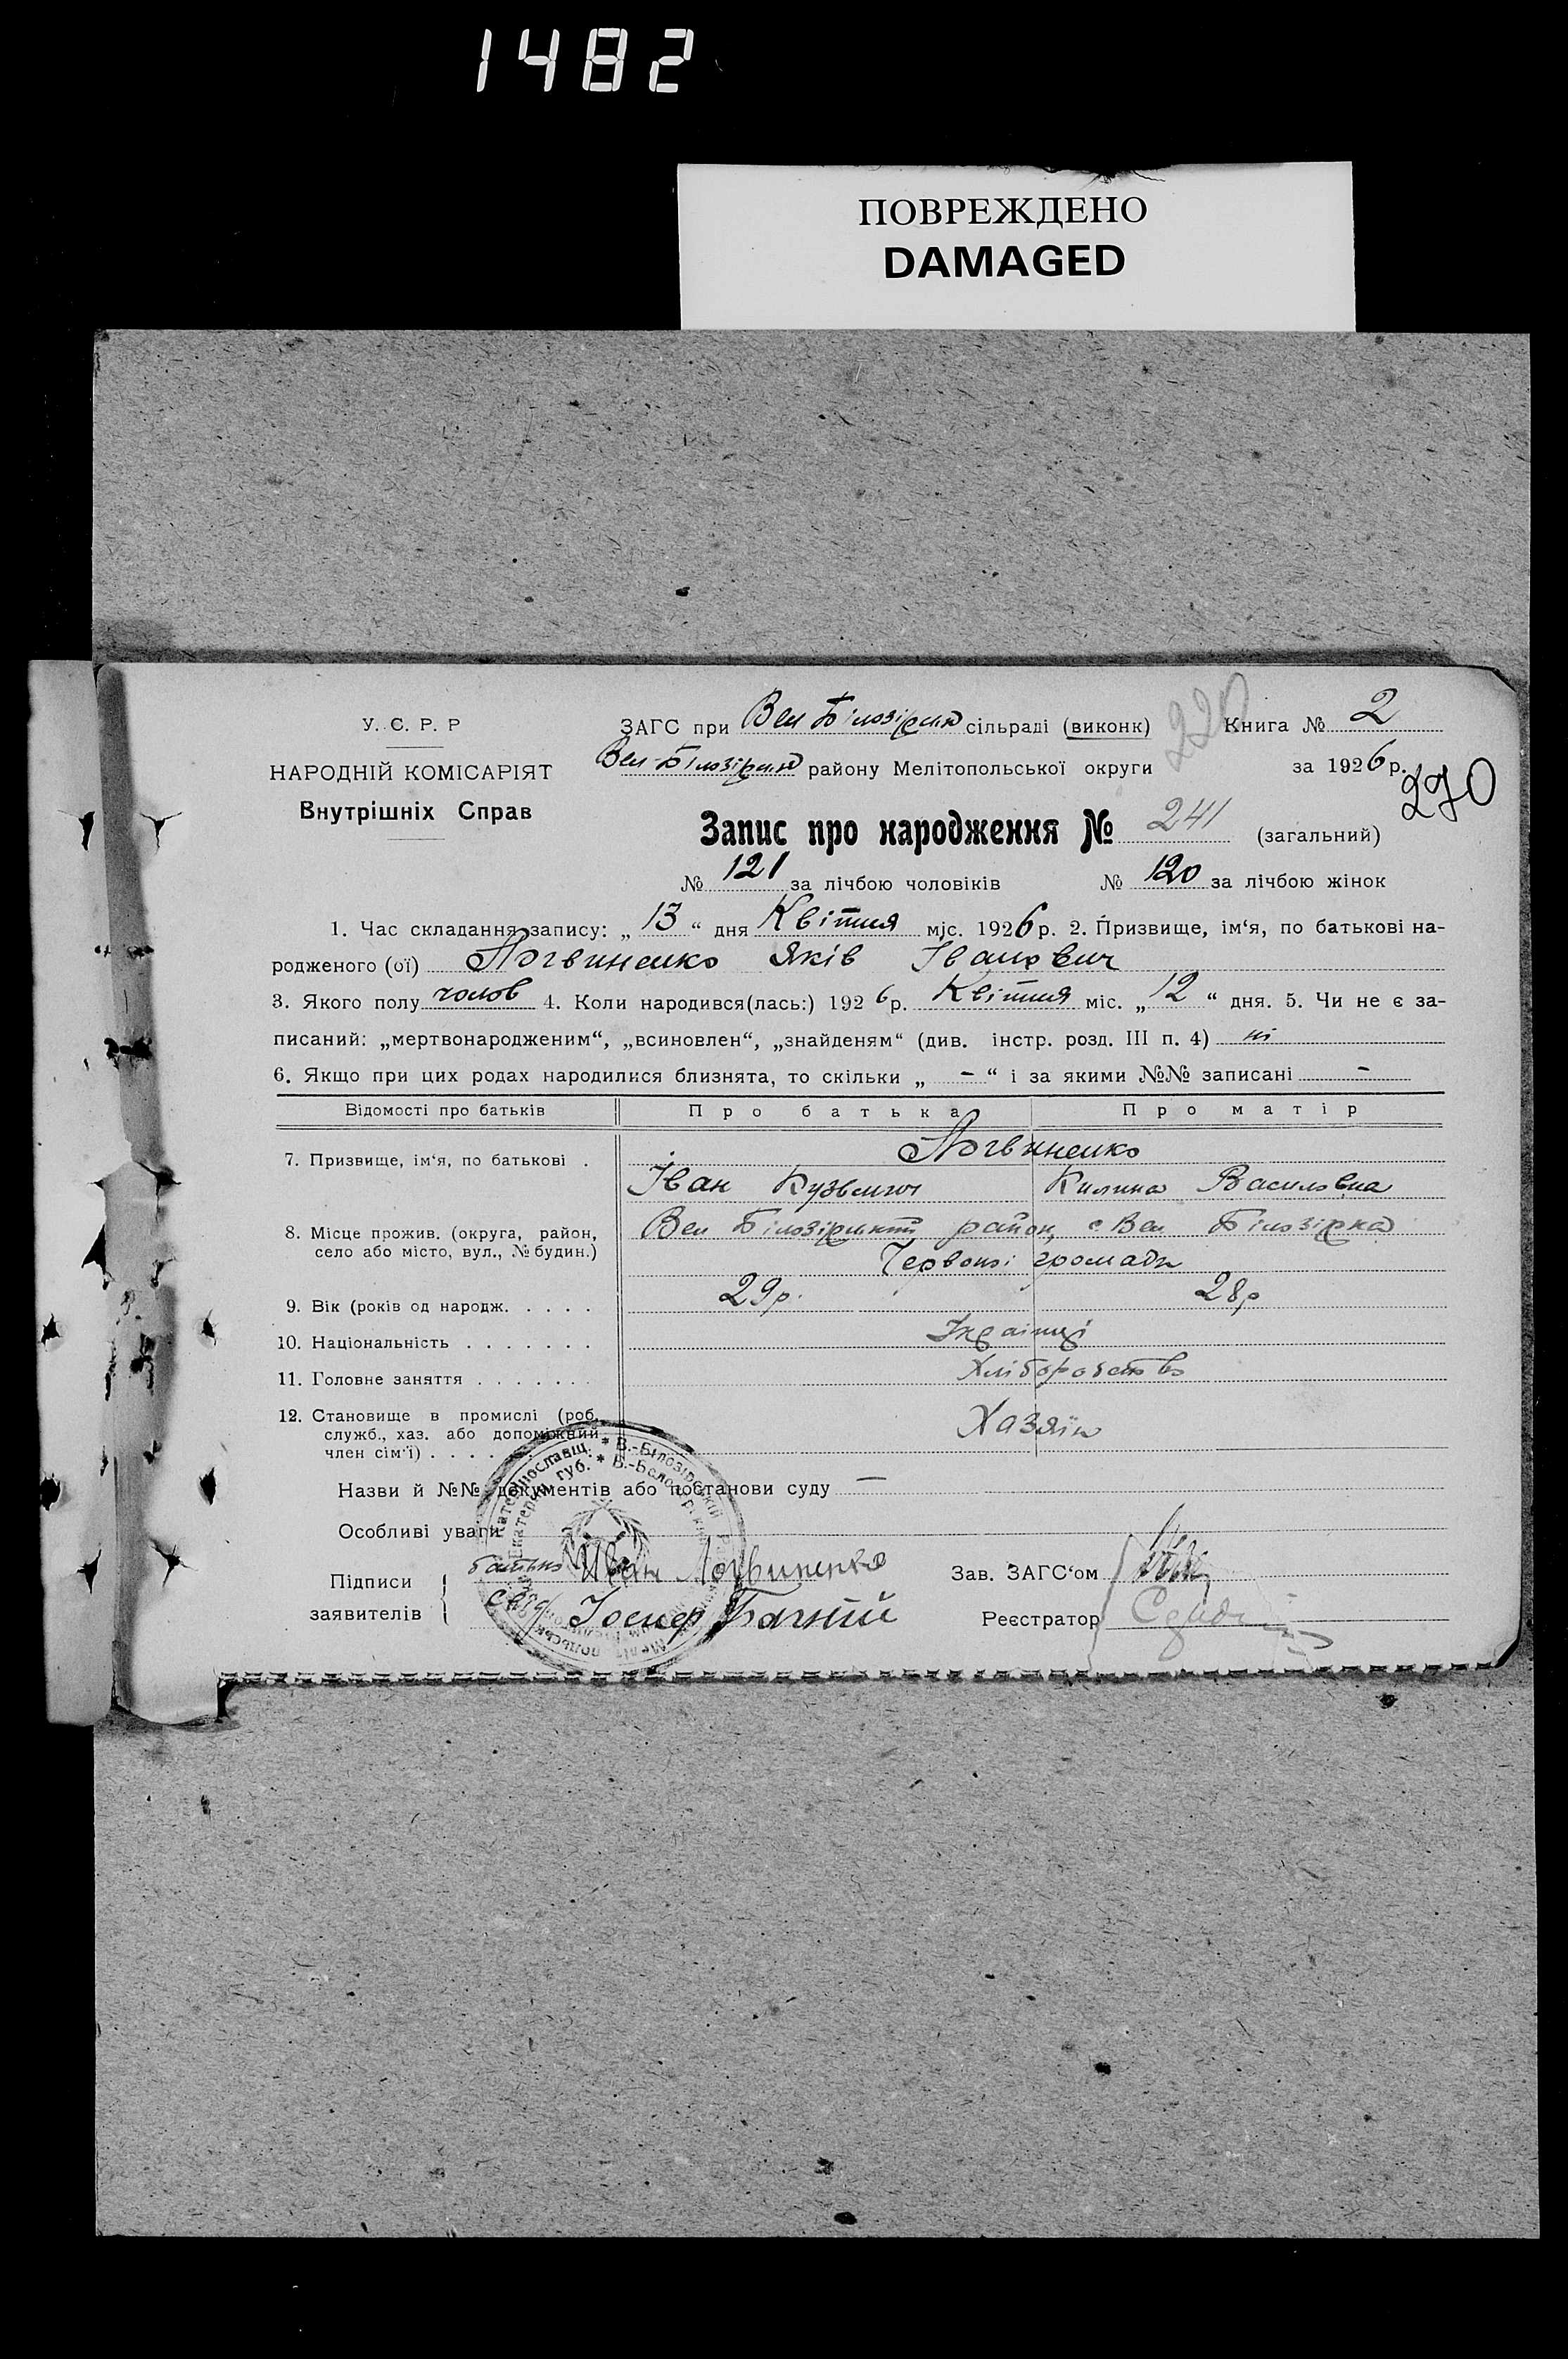 1482
ПОВРЕЖДЕНО
DAMAGED
220
У. С. Р. Р
НАРОДНІЙ КОМІСАРІЯТ
Внутрішніх Справ
ЗАГС при Вел Білозірська сільраді (виконк) Книга № 2
Вел-Білозірськ району Мелітопольської округи за 1926 р.
270
Запис про народження № 241 (загальний)
№ 121 за лічбою чоловіків № 120 за лічбою жінок
1. Час складання запису: „ 13 “ дня Квітня міс. 1926 р. 2. Призвище, ім‘я, по батькові на-
родженого (ої) Логвиненко Яків Іванович
3. Якого полу чолов 4. Коли народився(лась:) 192 6 р. Квітня міс. „ 12 “ дня. 5. Чи не є за-
писаний: „мертвонародженим“, „всиновлен“, „знайденям“ (див. інстр. розд. III п. 4) ні
6. Якщо при цих родах народилися близнята, то скільки „ - “ і за якими №№ записані -
Відомості про батьків Про батька Про матір
7. Призвище, ім‘я, по батькові . Логвиненко
Іван Кузьмич Килина Василовна
8. Місце прожив. (округа, район, село або місто, вул., № будин.) Вел Білозірский район, с Вел Білозірка
Червоної громади
9. Вік (років од народж. . . . . 29 р. 28 р
10. Національність . . . . . . . Українці
11. Головне заняття . . . . . . . Хліборобство
12. Становище в промислі (роб. служб., хаз. або допоміжний член сім‘ї) . . . . Хазяїн
Назви й №№ документів або постанови суду —
Особливі уваги
Підписи заявителів
батько Иван Логвиненко
Іосиф Бачний
Зав. ЗАГС‘ом
Реєстратор